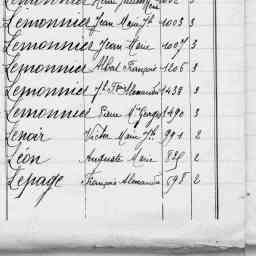 Lemonnier Jean Marie Jh 1003 3
Lemonnier Jean Marie 1007 3
Lemonnier Albert François 1206 3
Lemonnier Alexandre 1438 3
Lemonnier Pierre Mie Georges 1490 3
Lenoir Victor Marie Jh 991 2
Léon Auguste Marie 835 2
Lepage François Alexandre 698 2